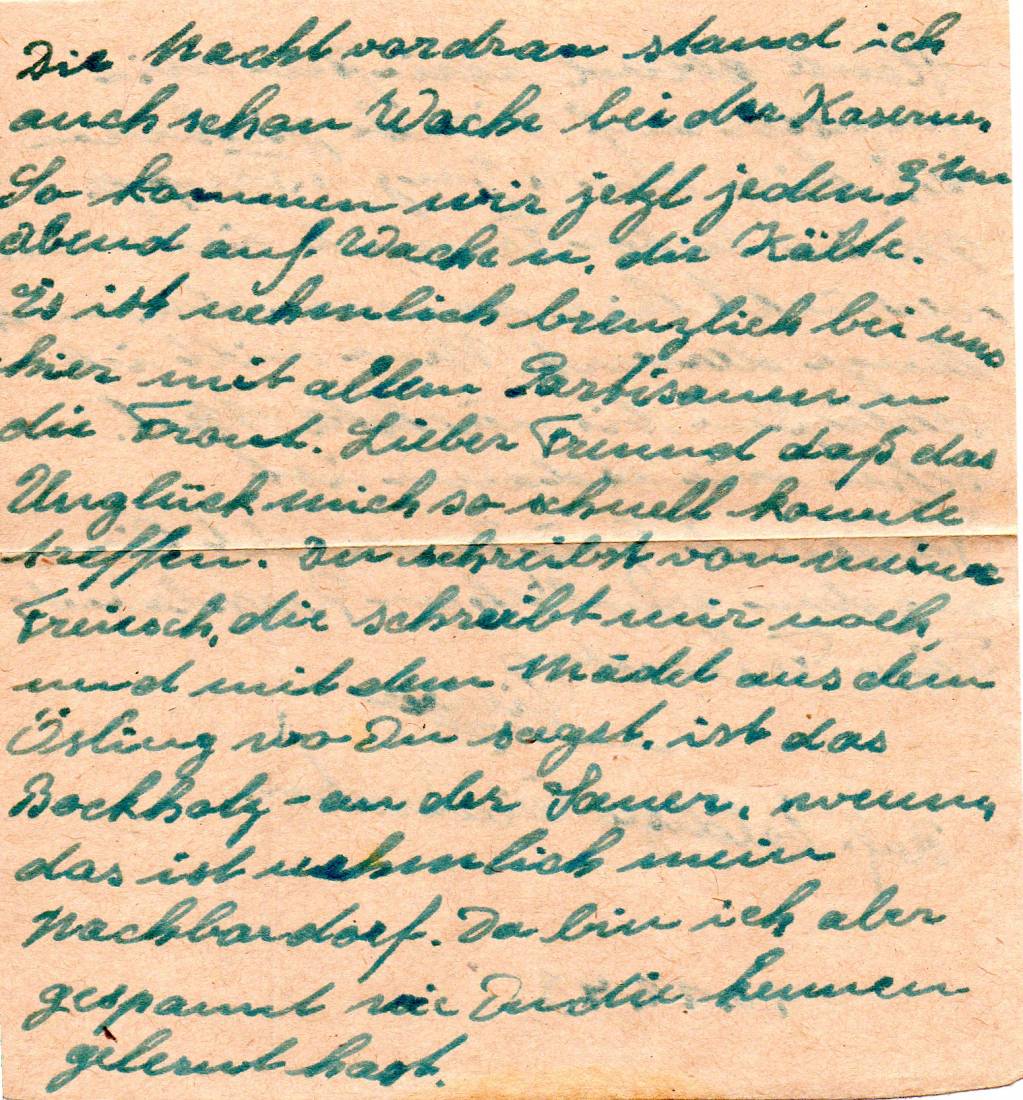 Die Nacht vordran stand ich
auch schon Wache bei der Kaserne,
So kommen wir jetzt jeden 3ten
Abend auf Wache u. die Kälte.
Es ist nehmlich brenzlich bei uns
hier mit allem Partisanen u
die Front. Lieber Freund daß das
Unglück mich so schnell konnte
treffen. Du schreibst von meiner
die schreibt mir noch,
und mit dem Mädel aus dem
Ösling wo Du sagst. ist das
Bockholz - an der Sauer, wenn,
das ist nehmlich mein
Nachbardorf. Da bin ich aber
gespannt wie Du die kennen
gelernt hast.